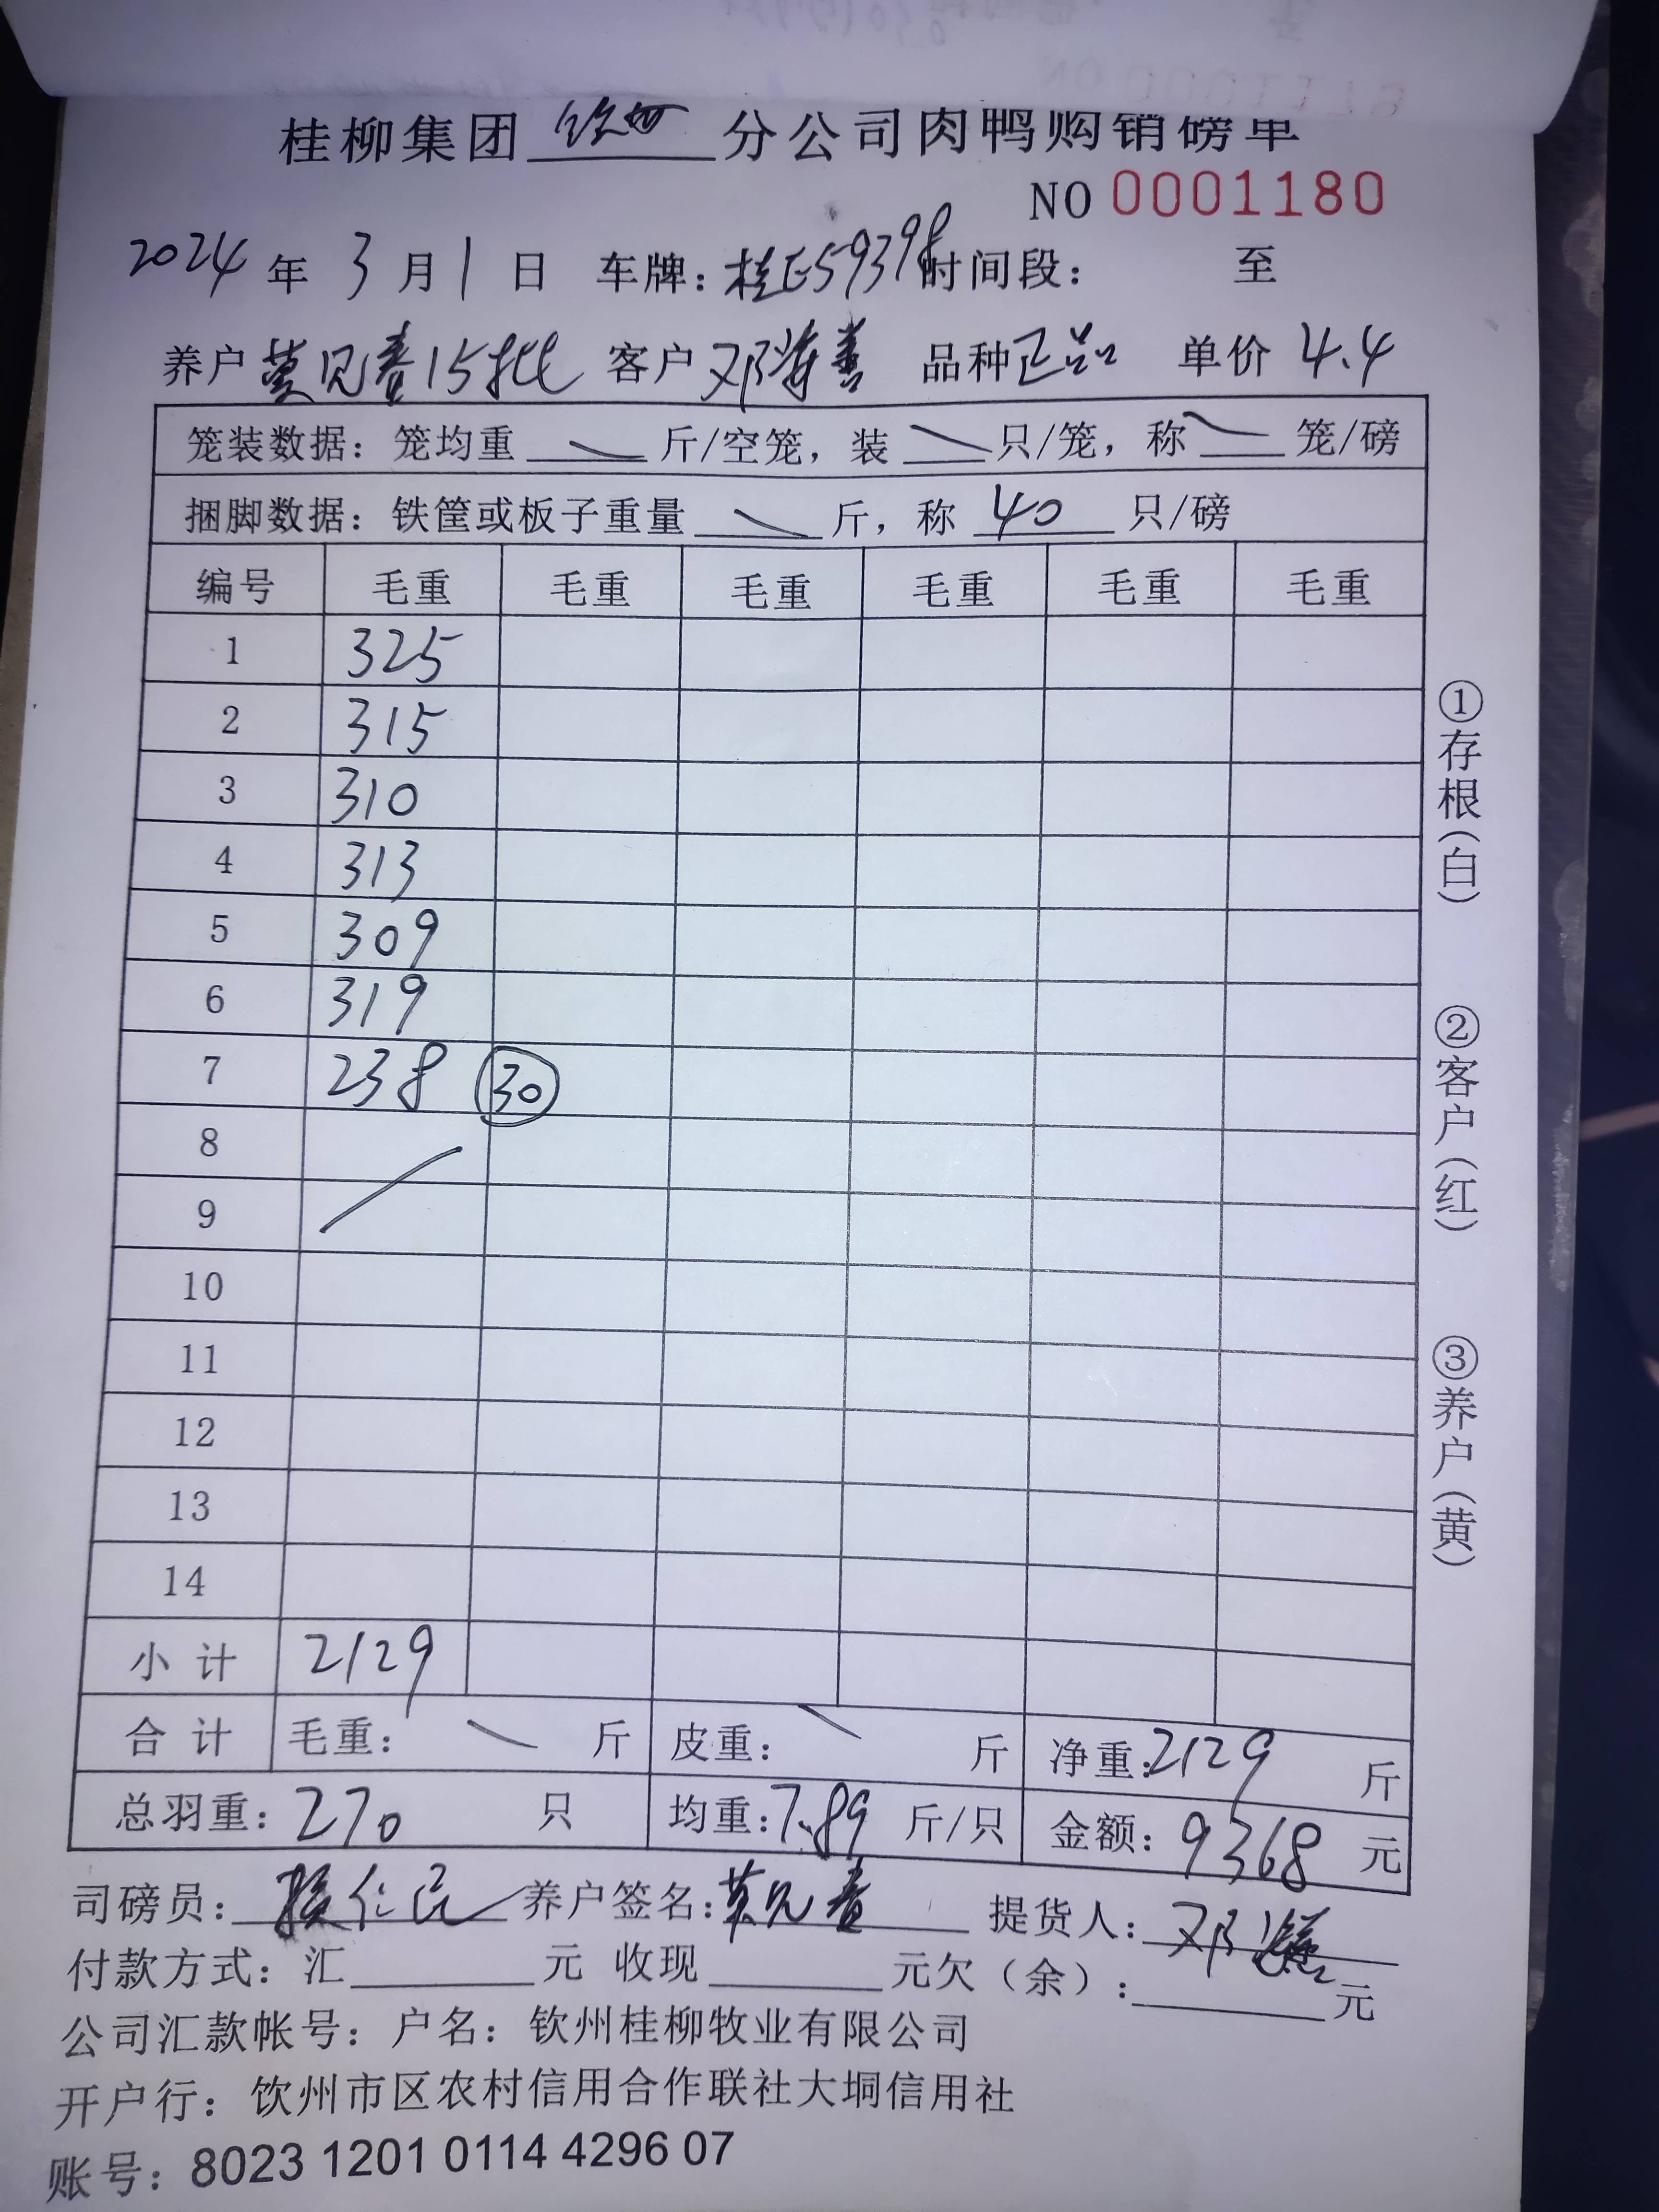 桂柳集团 钦州 分公司肉鸭购销磅单
NO 0001180
2024 年 3 月 1 日 车牌：桂E59398 时间段： 至
养户 莫见春15批 客户 邓海善 品种 正品 单价 4.4
笼装数据：笼均重 斤/空笼，装 只/笼，称 笼/磅
捆脚数据：铁筐或板子重量 斤，称 40 只/磅
编号 毛重 毛重 毛重 毛重 毛重 毛重
1 325
2 315
3 310
4 313
5 309
6 319
7 238 30
8
9
10
11
12
13
14
小计 2129
合计 毛重： 斤 皮重： 斤 净重：2129 斤
总羽重：270 只 均重：7.89 斤/只 金额：9368 元
司磅员： 养户签名：莫见春 提货人：邓
付款方式：汇 元 收现 元欠（余）： 元
公司汇款帐号：户名：钦州桂柳牧业有限公司
开户行：饮州市区农村信用合作联社大垌信用社
账号：8023 1201 0114 4296 07
①存根（白）
②客户（红）
③养户（黄）